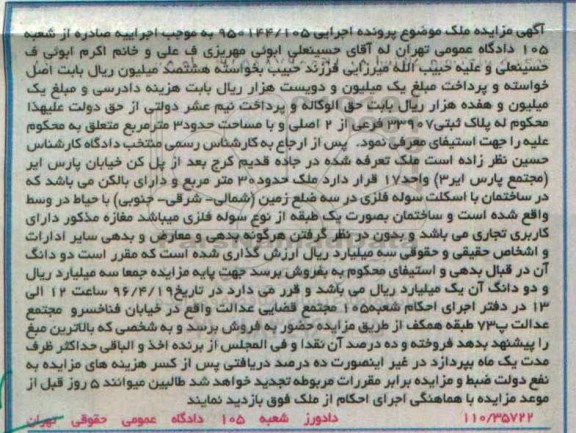 آگهی مزایده ملک موضوع پرونده اجرایی ۹۵۰۱۴۴/۱۰۵ به موجب اجراییه صادره از شعبه
۱۰۵ دادگاه عمومی تهران له آقای حسینعلی ابوئی مهریزی ف علی و خانم اکرم ابوئی ف
حسینعلی و علیه حبیب الله میرزایی فرزند حبیب بخواسته هشتصد میلیون ریال بابت اصل
خواسته و پرداخت مبلغ یک میلیون و دویست هزار ریال بابت هزینه دادرسی و مبلغ یک
میلیون و هفده هزار ریال بابت حق الوکاله و پرداخت نیم عشر دولتی از حق دولت علیهذا
محکوم له پلاک ثبتی ۳۳۹۰۷ فرعی از ۲ اصلی و با مساحت حدود ۳۰ مترمربع متعلق به محکوم
علیه را جهت استیفای معرفی نمود. پس از ارجاع به کارشناس رسمی منتخب دادگاه کارشناس
حسین نظر زاده است ملک تعرفه شده در جاده قدیم کرج بعد از پل کن خیابان پارس ایر
(مجتمع پارس ایر۳) واحد۱۷ قرار دارد ملک حدود ۳۰ متر مربع و دارای بالکن می باشد که
در ساختمان با اسکلت سوله فلزی در سه ضلع زمین (شمالی- شرقی- جنوبی) با حیاط در وسط
واقع شده است و ساختمان بصورت یک طبقه از نوع سوله فلزی میباشد مغازه مذکور دارای
کاربری تجاری می باشد و بدون در نظر گرفتن هرگونه بدهی و معارض و بدهی سایر ادارات
و اشخاص حقیقی و حقوقی سه میلیارد ریال ارزش گذاری شده است که مقرر است دو دانگ
آن در قبال بدهی و استیفای محکوم به بفروش برسد جهت پایه مزایده جمعا سه میلیارد ریال
و دو دانگ آن یک میلیارد ریال می باشد و قرر می دارد در تاریخ ۹۶/۴/۱۹ ساعت ۱۲ الی
۱۳ در دفتر اجرای احکام شعبه۱۰۵ مجتمع قضایی عدالت واقع در خیابان فناخسرو مجتمع
عدالت پ۷۳ طبقه همکف از طریق مزایده حضور به فروش برسد و به شخصی که بالاترین مبغ
را پیشنهد بدهد فروخته و ده درصد آن نقدا و فی المجلس از برنده اخذ و الباقی حداکثر ظرف
مدت یک ماه بپردازد در غیر اینصورت ده درصد دریافتی پس از کسر هزینه های مزایده به
نفع دولت ضبط و مزایده برابر مقررات مربوطه تجدید خواهد شد طالبین میوانند ۵ روز قبل از
موعد مزایده با هماهنگی اجرای احکام از ملک فوق بازدید نمایند
۱۱۰/۳۵۷۲۲ دادورز شعبه ۱۰۵ دادگاه عمومی حقوقی تهران